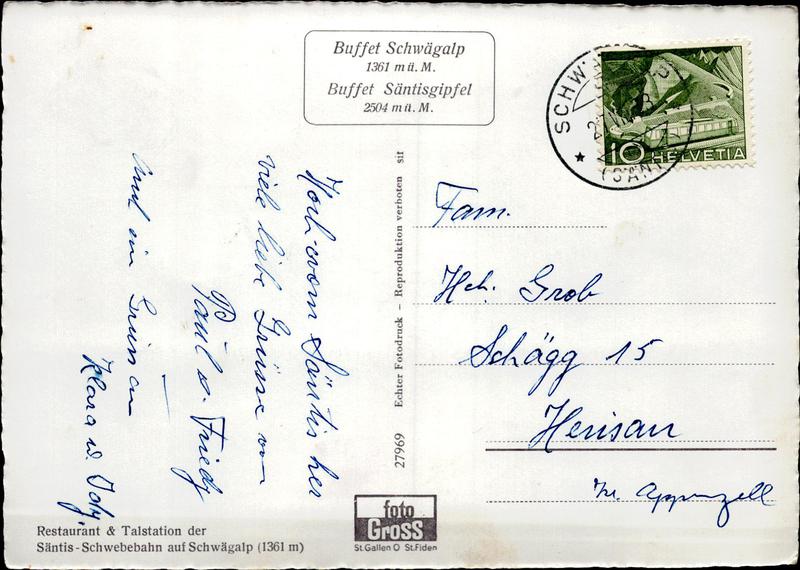 Buffet Schwägalp
1361 m ü. M.
Buffet Säntisgipfel
2504 m ü. M.
SCHW
(SÄN
10 HELVETIA
Hoch vom Säntis her
viele liebe Grüsse von
Paul u. Friedy
Und ein Gruss an
Klara u.
27969 Echter Fotodruck – Reproduktion verboten sif
Fam.
Hch. Grob
Schägg 15
Herisau
Kt. Appenzell
Restaurant & Talstation der
Säntis-Schwebebahn auf Schwägalp (1361 m)
foto
Gross
St.Gallen O St.Fiden